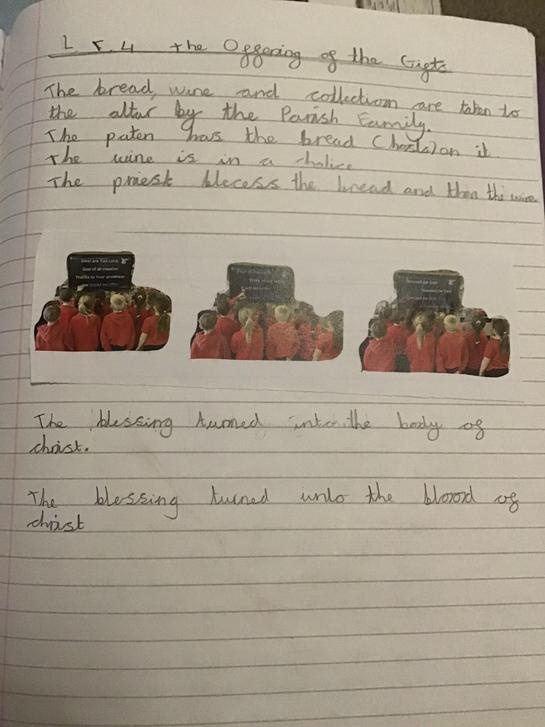 L F.4 the Offering of the Gifts
The bread, wine and collection are taken to
the altar by the Parish Family.
The paten has the bread (hosts) on it.
The wine is in a chalice
The priest blecess the bread and then the wine
Blessed are You Lord,
God of all creation
Thanks to Your goodness
The blessing turned into the body of
christ.
The blessing turned unto the blood of
christ